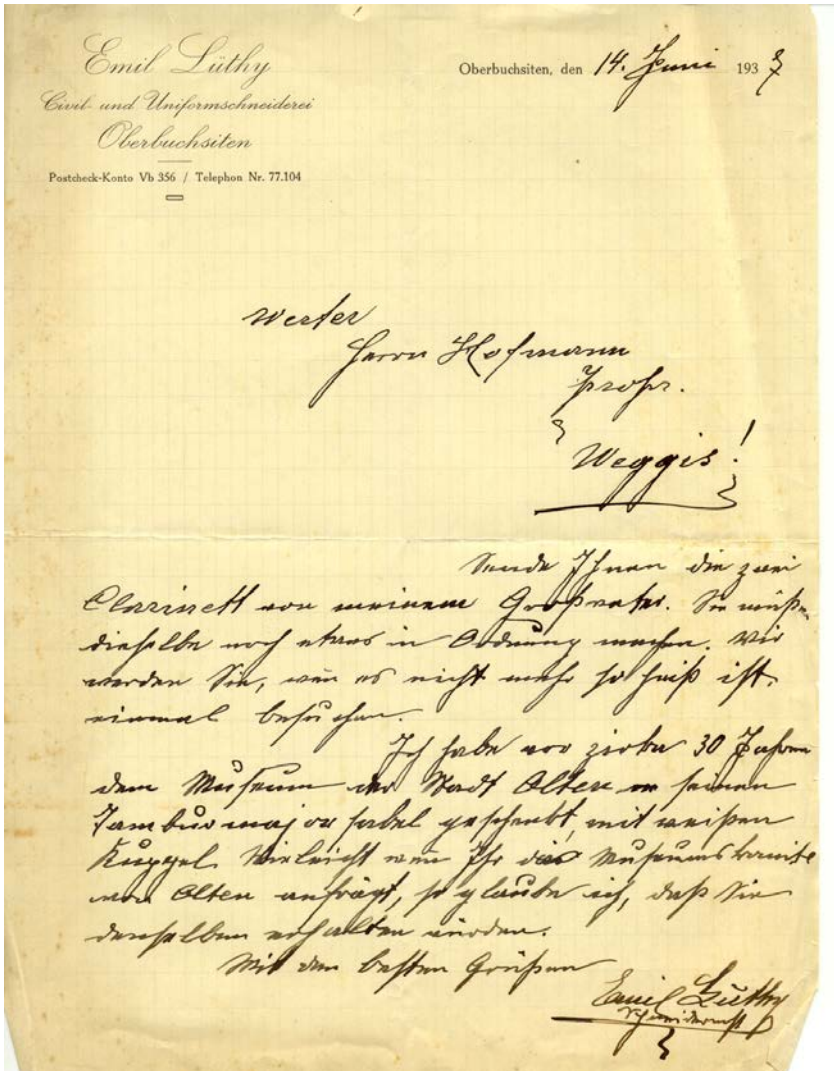 Emil Lüthy
Civil- und Uniformschneiderei
Oberbuchsiten
Postcheck-Konto Vb 356 / Telephon Nr. 77.104
Oberbuchsiten, den 14. Juni 193
Werter
Herrn Hofmann
Weggis!
Sende Ihnen die zwei
Clarinett von meinem Großvater. Sie müßen
dieselbe noch etwas in Ordnung machen. Wir
werden Sie, wen es nicht mehr so heiß ist,
einmal besuchen.
Ich habe vor zirka 30 Jahren
dem Museum der Stadt Olten seinen
Tambourmajor sabel geschenkt, mit weißen
Kuppel. Vieleicht wen Ihr das
von Olten anfrägt, so glaube ich, daß Sie
denselben erhalten würden.
Mit den besten Grüßen
Emil Lüthy